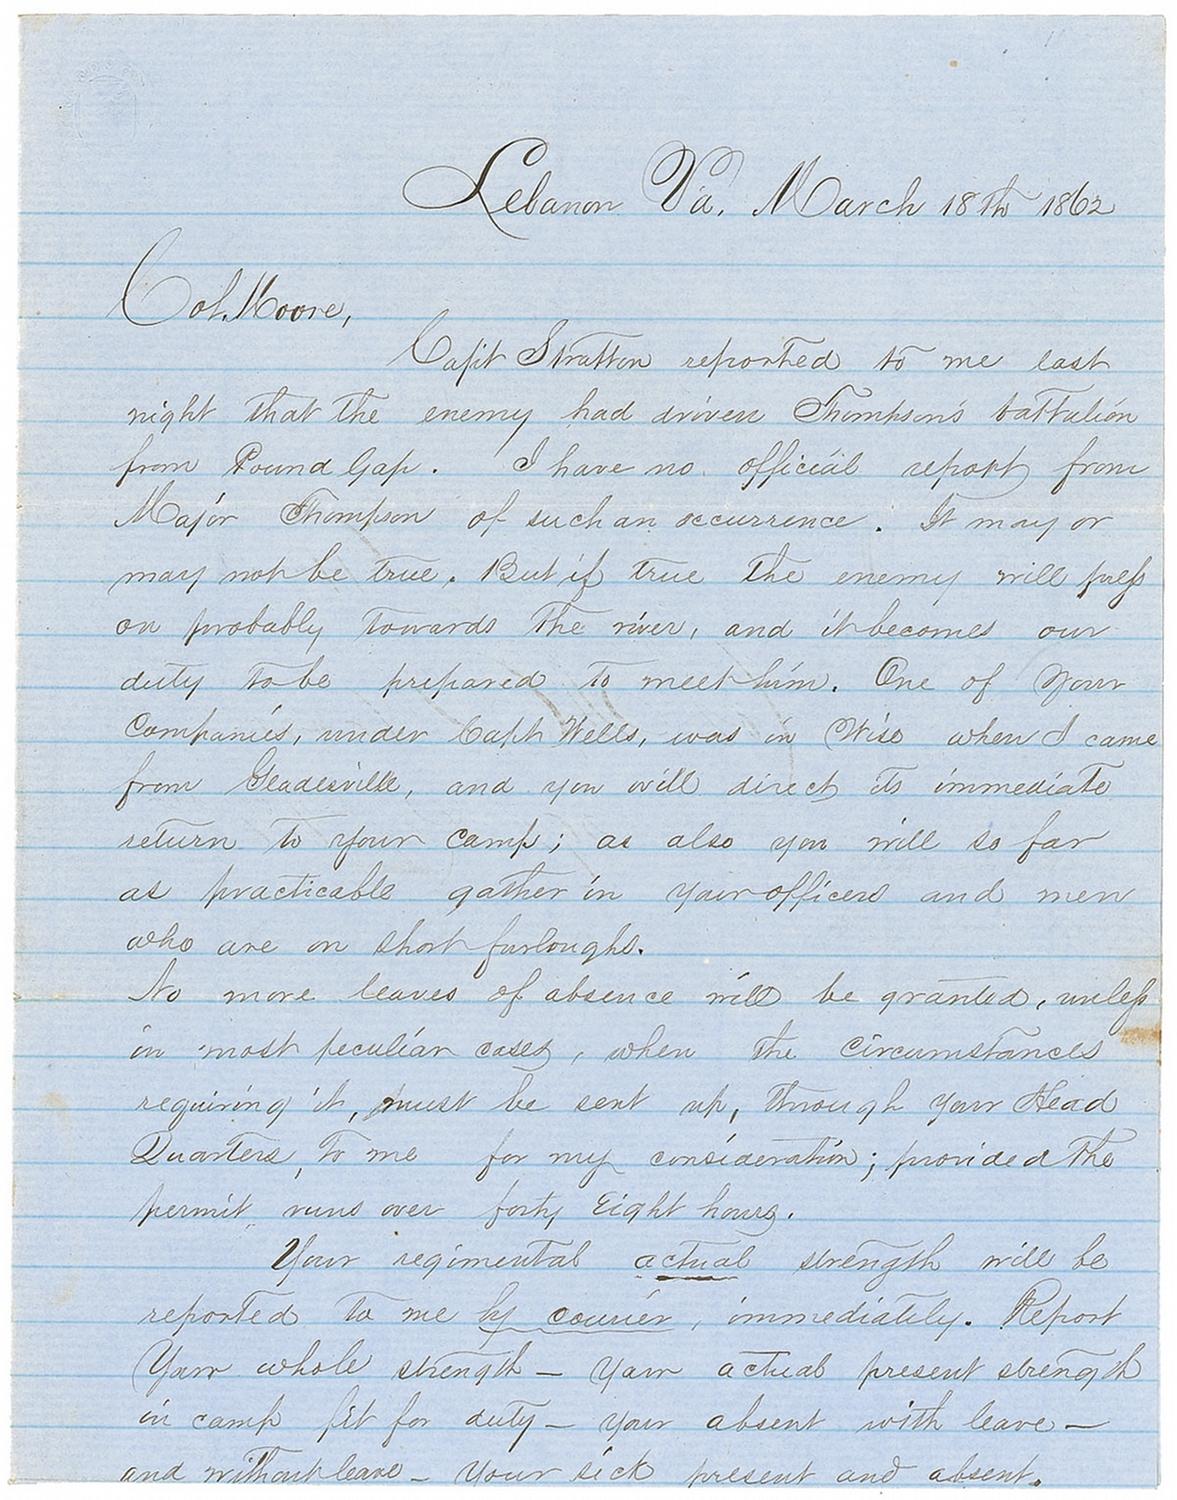 Lebanon Va. March 18th 1862
Col. Moore,
Capt Stratton reported to me last
night that the enemy had driven Thompson's battalion
from Pound Gap. I have no official report from
Major Thompson of such an occurrence. It may or
may not be true. But if true the enemy will press
on probably towards the river, and it becomes our
duty to be prepared to meet him. One of your
Companies, under Capt Wells, was in Wise when I came
from Gladesville, and you will direct its immediate
return to your camp; as also you will so far
as practicable gather in your officers and men
who are on short furloughs.
No more leaves of absence will be granted, unless
in most peculiar cases, when the circumstances
requiring it, must be sent up, through your Head
Quarters, to me for my consideration; provided the
permit runs over forty Eight hours.
Your regimental actual strength will be
reported to me by courier, immediately. Report
Your whole strength — your actual present strength
in camp fit for duty — your absent with leave —
and without leave — your sick present and absent.